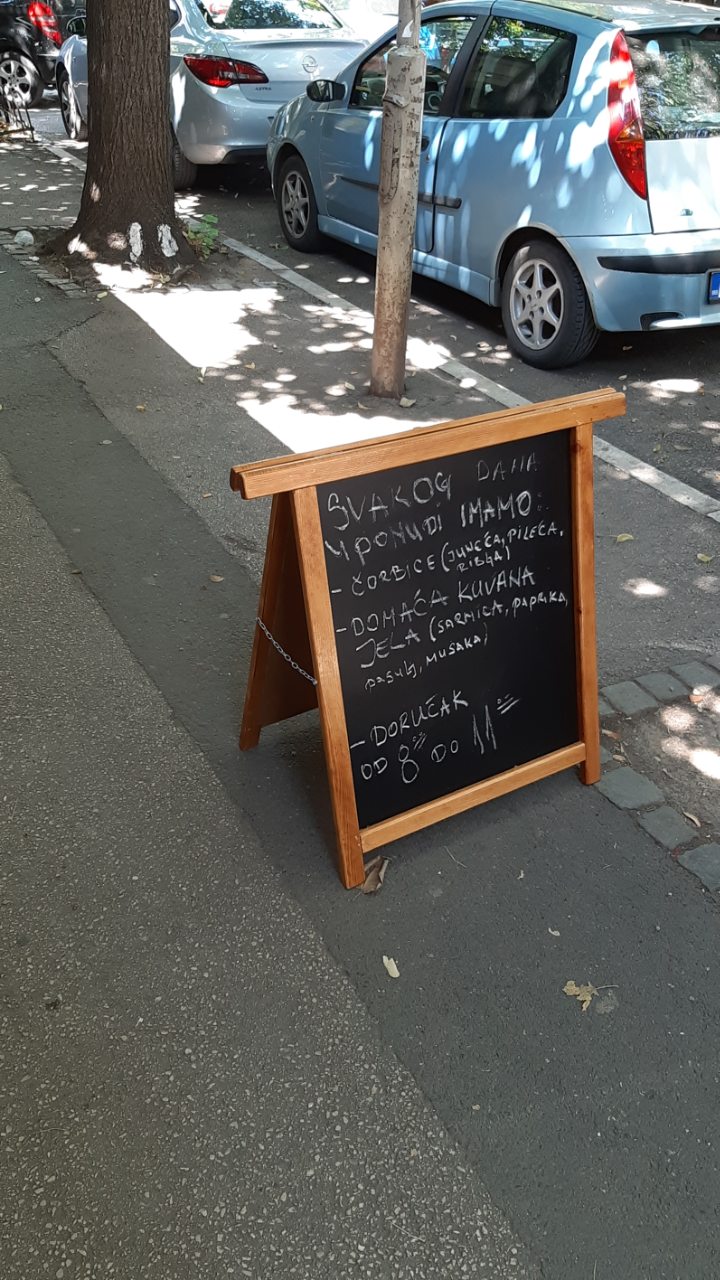 SVAKOG DANA
U PONUDI IMAMO:
- ČORBICE (JUNEĆA, PILEĆA,
RIBLJA)
- DOMAĆA KUVANA
JELA (SARMICA, PAPRIKA,
PASULJ, MUSAKA)
- DORUČAK
OD 8°° DO 11°°